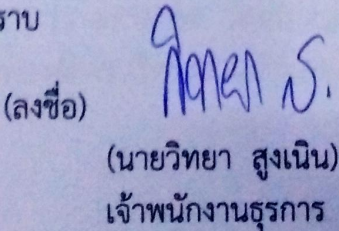 ราบ
(ลงชื่อ) วิทยา ส.
(นายวิทยา สูงเนิน)
เจ้าพนักงานธุรการ